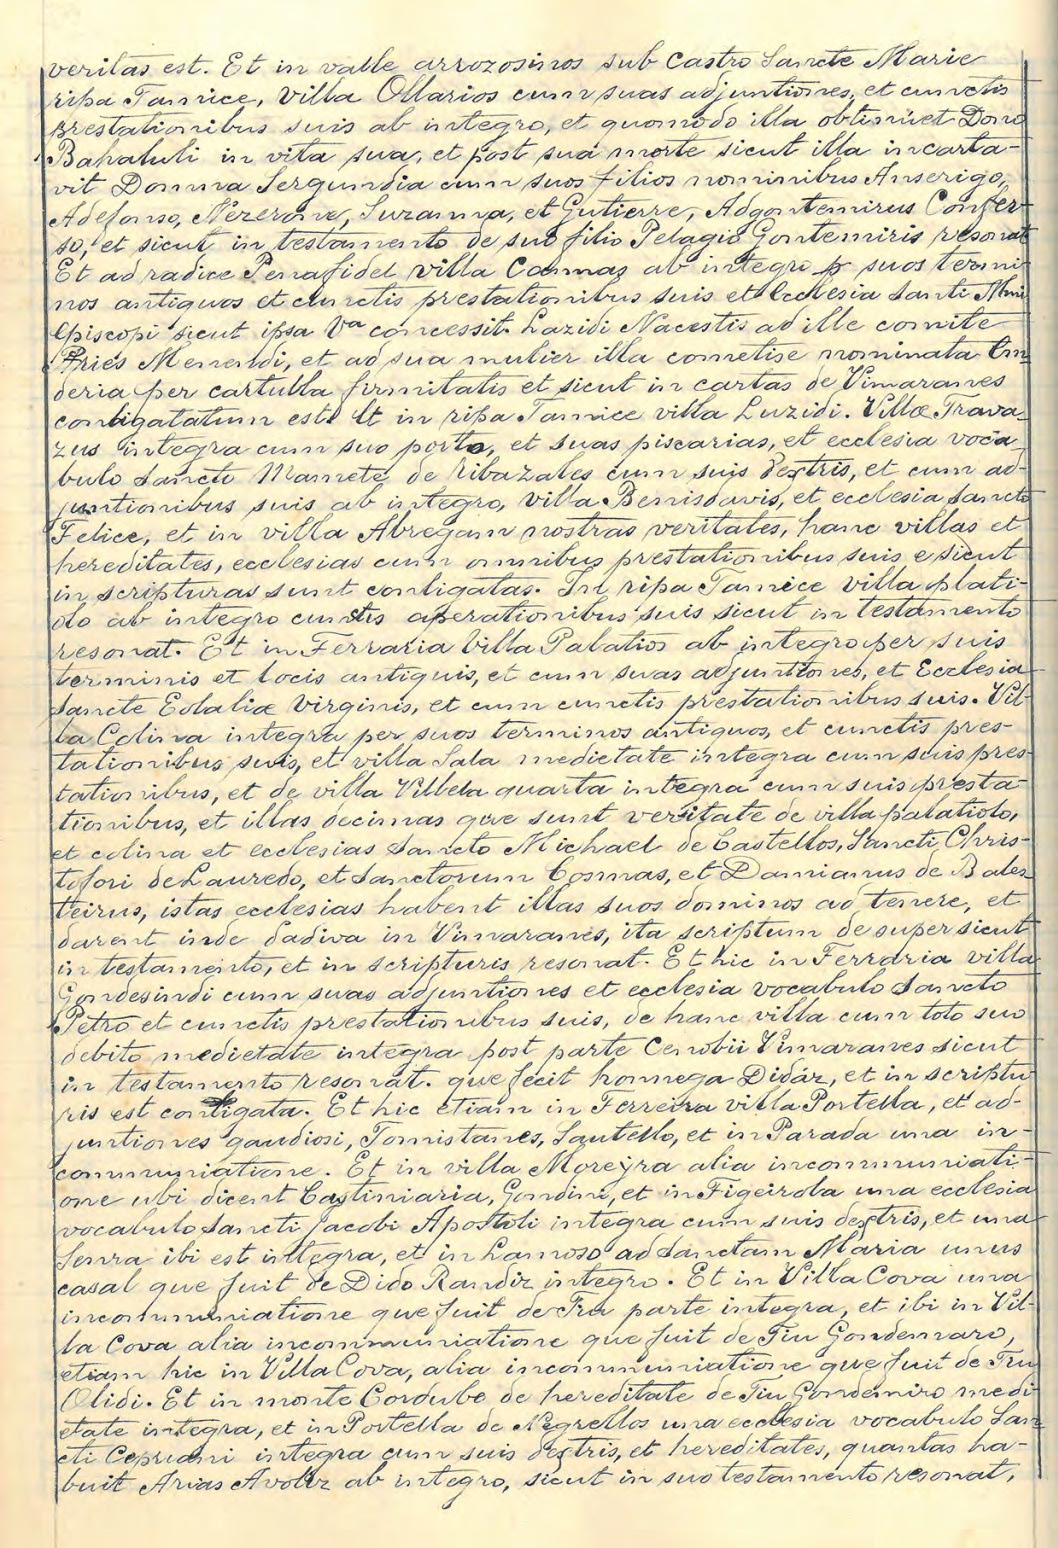 veritas est. Et in valle arrozosinos sub Castro Sancte Marie
ripa Tamice, Villa Ollarios cum suas adjuntiones, et cunctis
prestationibus suis ab integro, et quomodo illa obtinuet Dono
Bahaluli in vita sua, et post sua morte sicut illa incarta-
vit Domna Serguindia cum suos filios nominibus Anserigo,
Adefonso, Nezerone, Suzanna, et Gutierre, Adgontemirus Confer-
so, et sicut in testamento de suo filio Pelagio Gontemiris resonat
Et ad radice Penafidel villa Cannas ab integro p suos termi-
nos antiquos et cunctis prestationibus suis et Ecclesia Santi
Episcopi sicut ipsa Va concessit Lazidi Nacestis ad ille comite
Aries Menendi, et ad sua mulier illa cometise nominata Em-
deria per cartulla firmitatis et sicut in cartas de Vimaranes
contigatatum est. Et in ripa Tamice villa Luzidi. Villæ Trava-
zus integra cum suo porto, et suas piscarias, et ecclesia voca-
bulo Sancto Mamete de Ribazales cum suis dextris, et cum ad-
juntionibus suis ab integro, villa Benisdavis, et ecclesia Sancto
Felice, et in villa Abregam nostras veritates, hanc villas et
hereditates, ecclesias cum omnibus prestationibus suis e sicut
in scripturas sunt contigatas. In ripa Tamice villa plati-
do ab integro cunctis aperationibus suis sicut in testamento
resonat. Et in Ferraria Villa Palatios ab integro per suis
terminis et locis antiquis, et cum suas adjuntiones, et Ecclesia
Sancte Eolaliæ Virginis, et cum cunctis prestationibus suis. Vil-
la Colina integra per suos terminos antiquos, et cunctis pres-
tationibus suis, et villa Sala medietate integra cum suis pres-
tationibus, et de villa Villela quarta integra cum suis presta-
tionibus, et illas decimas que sunt veritate de villa palatiolo,
et colina et ecclesias Sancto Michael de Castellos, Sancti Chris-
tofori de Lauredo, et Sanctorum Cosmas, et Damianus de Bales-
teirus, istas ecclesias habent illas suos dominos ad tenere, et
darent inde dadiva in Vimaranes, ita scriptum desuper sicut
in testamento, et in scripturis resonat. Et hic in Ferraria villa
Gondesindi cum suas adjuntiones et ecclesia vocabulo Sancto
Petro et cunctis prestationibus suis, de hanc villa cum toto suo
debito medietate integra post parte Cenobii Vimaranes sicut
in testamento resonat. que fecit honnega Didáz, et in scriptu-
ris est contigata. Et hic etiam in Ferreira villa Portella, et ad-
juntiones gaudiosi, Tomistanes, Sautello, et in Parada una in-
communiatione. Et in villa Moreyra alia incommuniati-
one ubi dicent Castiniaria, Gondini, et in Figeirola una ecclesia
vocabulo Sancti Jacobi Apostoli integra cum suis dextris, et una
Senra ibi est integra, et in Lamoso ad Sanctam Maria unus
casal que fuit de Dido Randiz integro. Et in Villa Cova una
incommuniatione que fuit de Tra parte integra, et ibi in Vil-
la Cova alia incommuniatione que fuit de Tiu Gondemaro,
etiam hic in Villa Cova, alia incommuniatione que fuit de Tiu
Olidi. Et in monte Cordube de hereditate de Tiu Gondemiro medi-
etate integra, et in Portella de Negrellos una ecclesia vocabulo San-
cti Cepriani integra cum suis dextris, et hereditates, quantas ha-
buit Arias Avoliz ab integro, sicut in suo testamento resonat,